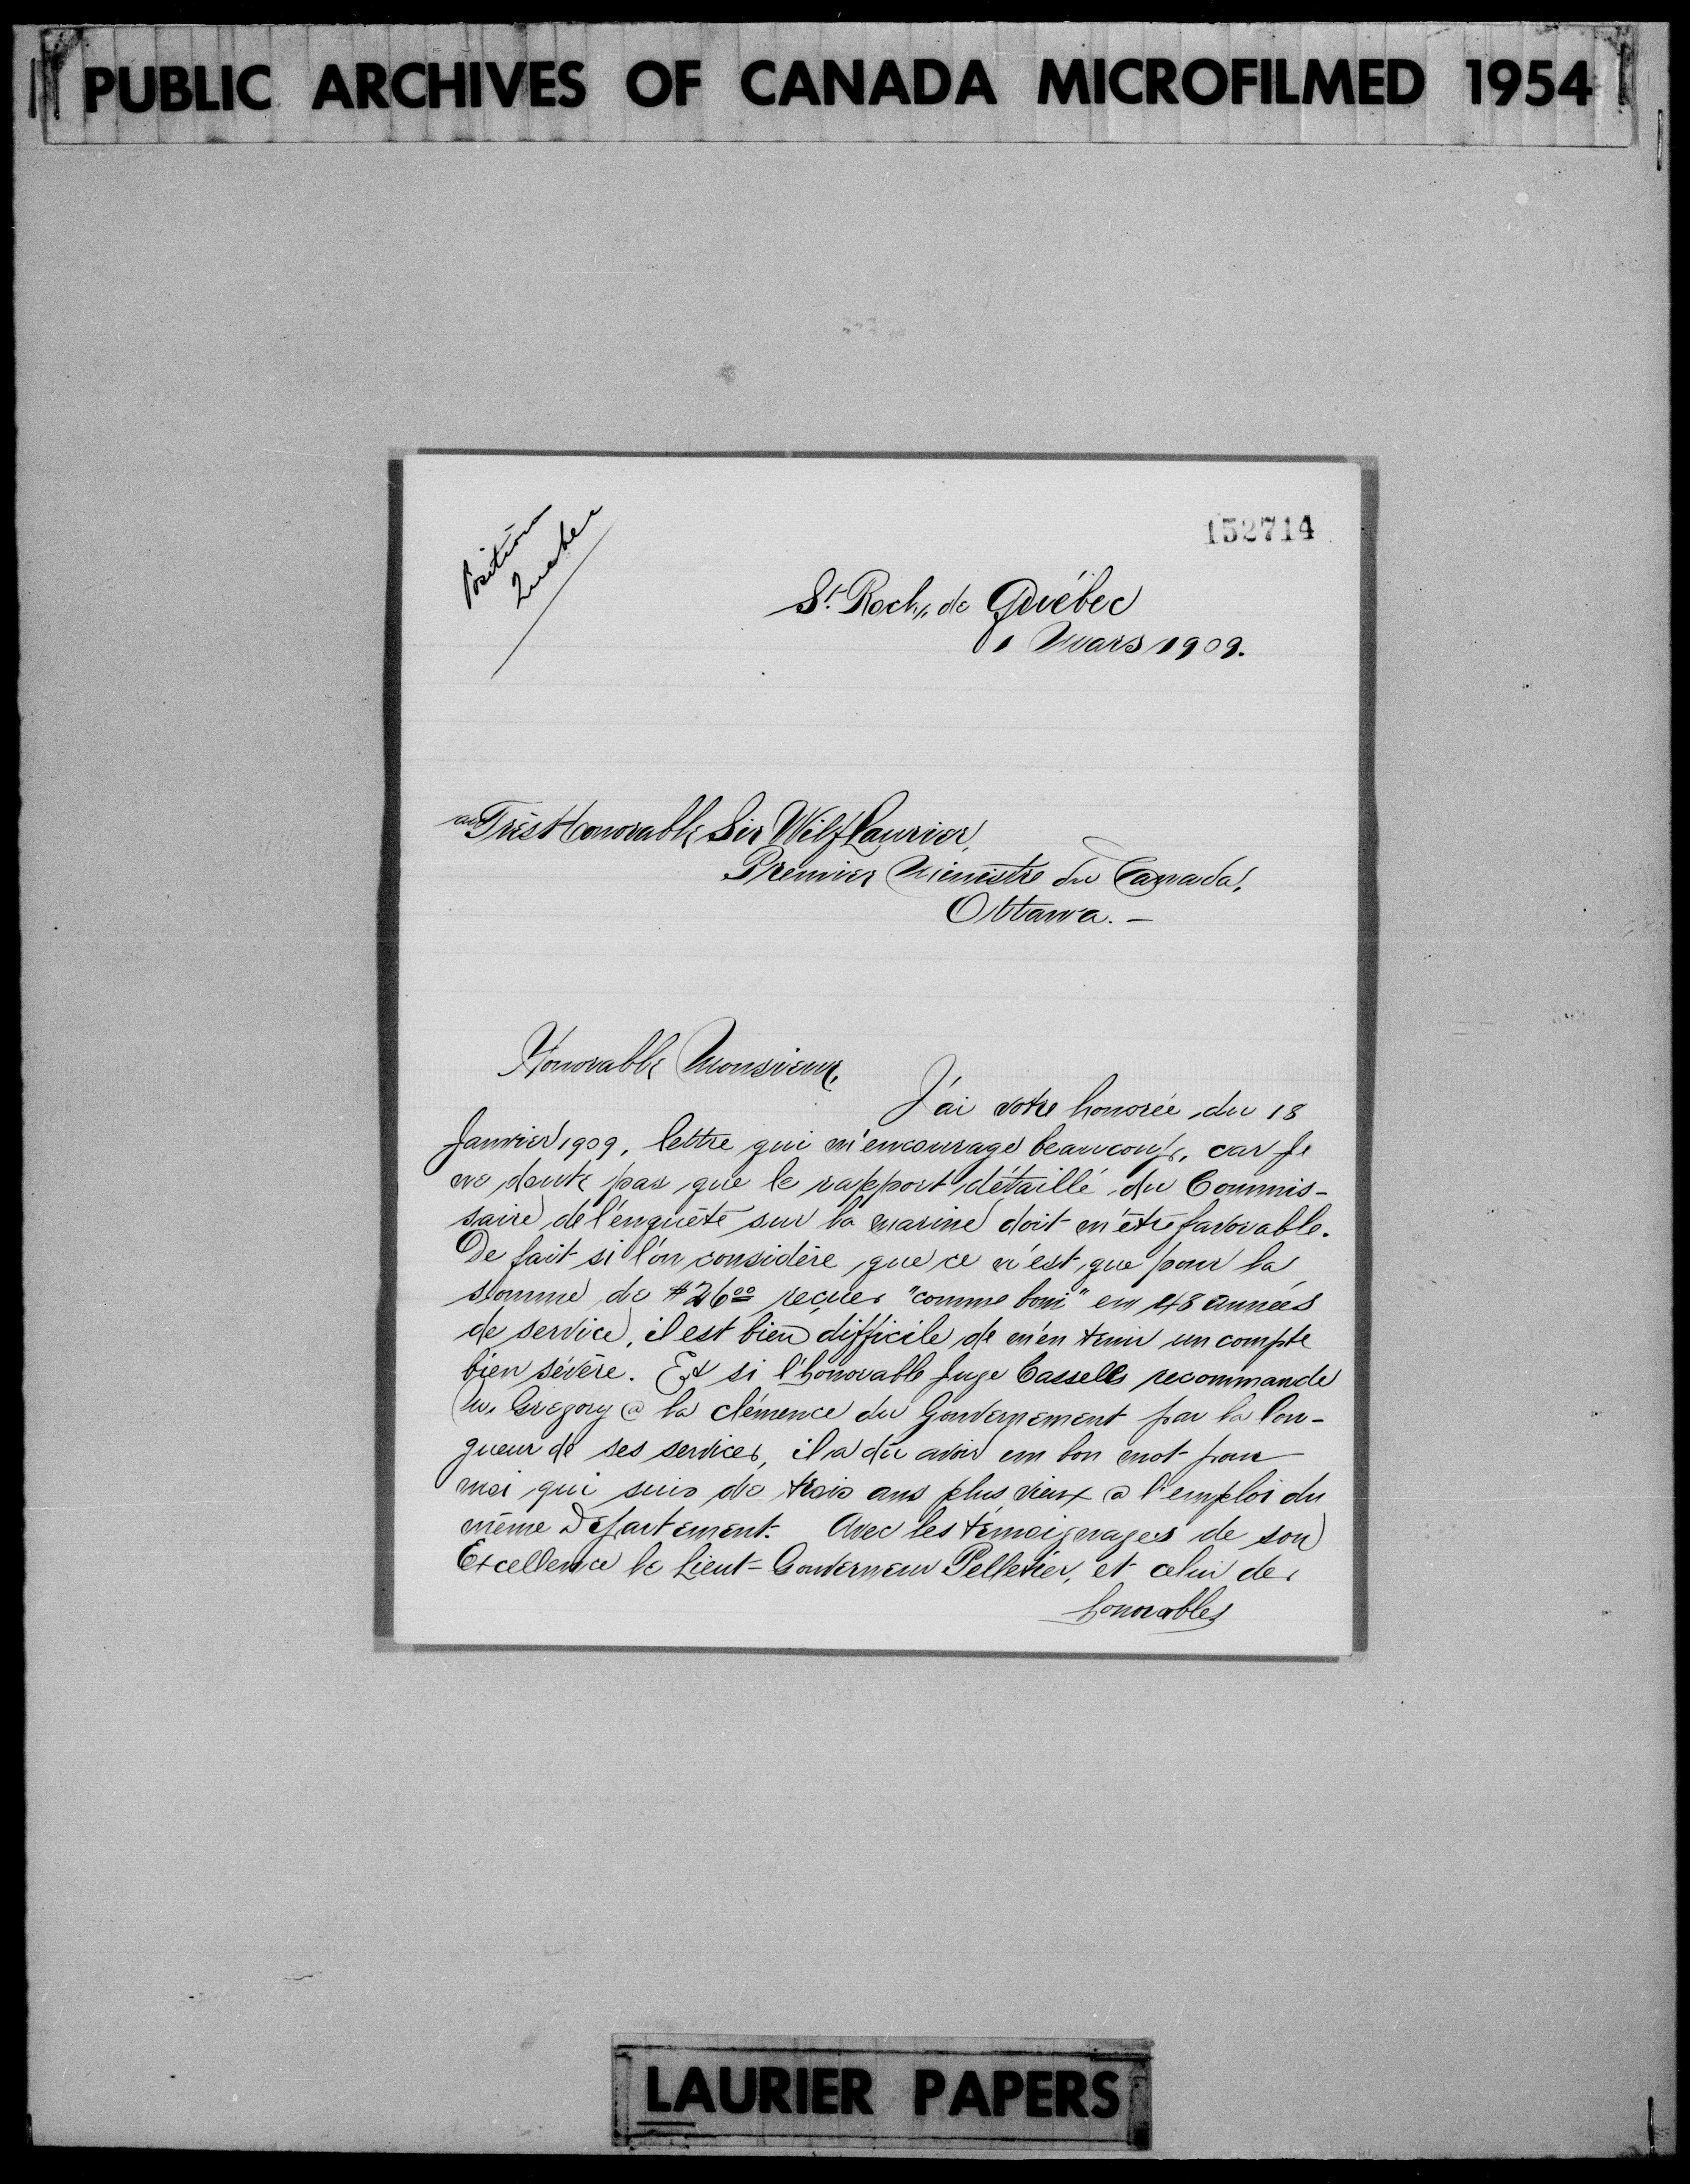 PUBLIC ARCHIVES OF CANADA MICROFILMED 1954
Position
Quebec
152714
St. Roch, de Québec
1 Mars 1909.
au Très Honorable Sir Wilf Laurier,
Premier Ministre du Canada,
Ottawa. –
Honorable Monsieur,
J'ai votre honorée, du 18
Janvier 1909, lettre qui m'encourage beaucoup, car je
ne doute pas que le rapport détaillé du Commis-
saire de l'enquête sur la marine doit m'être favorable.
De fait si l'on considère que ce n'est que pour la
somme de $26.00 reçues "comme boni" en 48 années
de service, il est bien difficile de m'en tenir un compte
bien sévère. Et si l'honorable Juge Cassells recommande
M. Gregory @ la clémence du Gouvernement par la lon-
gueur de ses services, il a dû avoir un bon mot pour
moi qui suis de trois ans plus vieux @ l'emploi du
même Département. Avec les témoignages de son
Excellence le Lieut-Gouverneur Pelletier, et celui des
honorables
LAURIER PAPERS